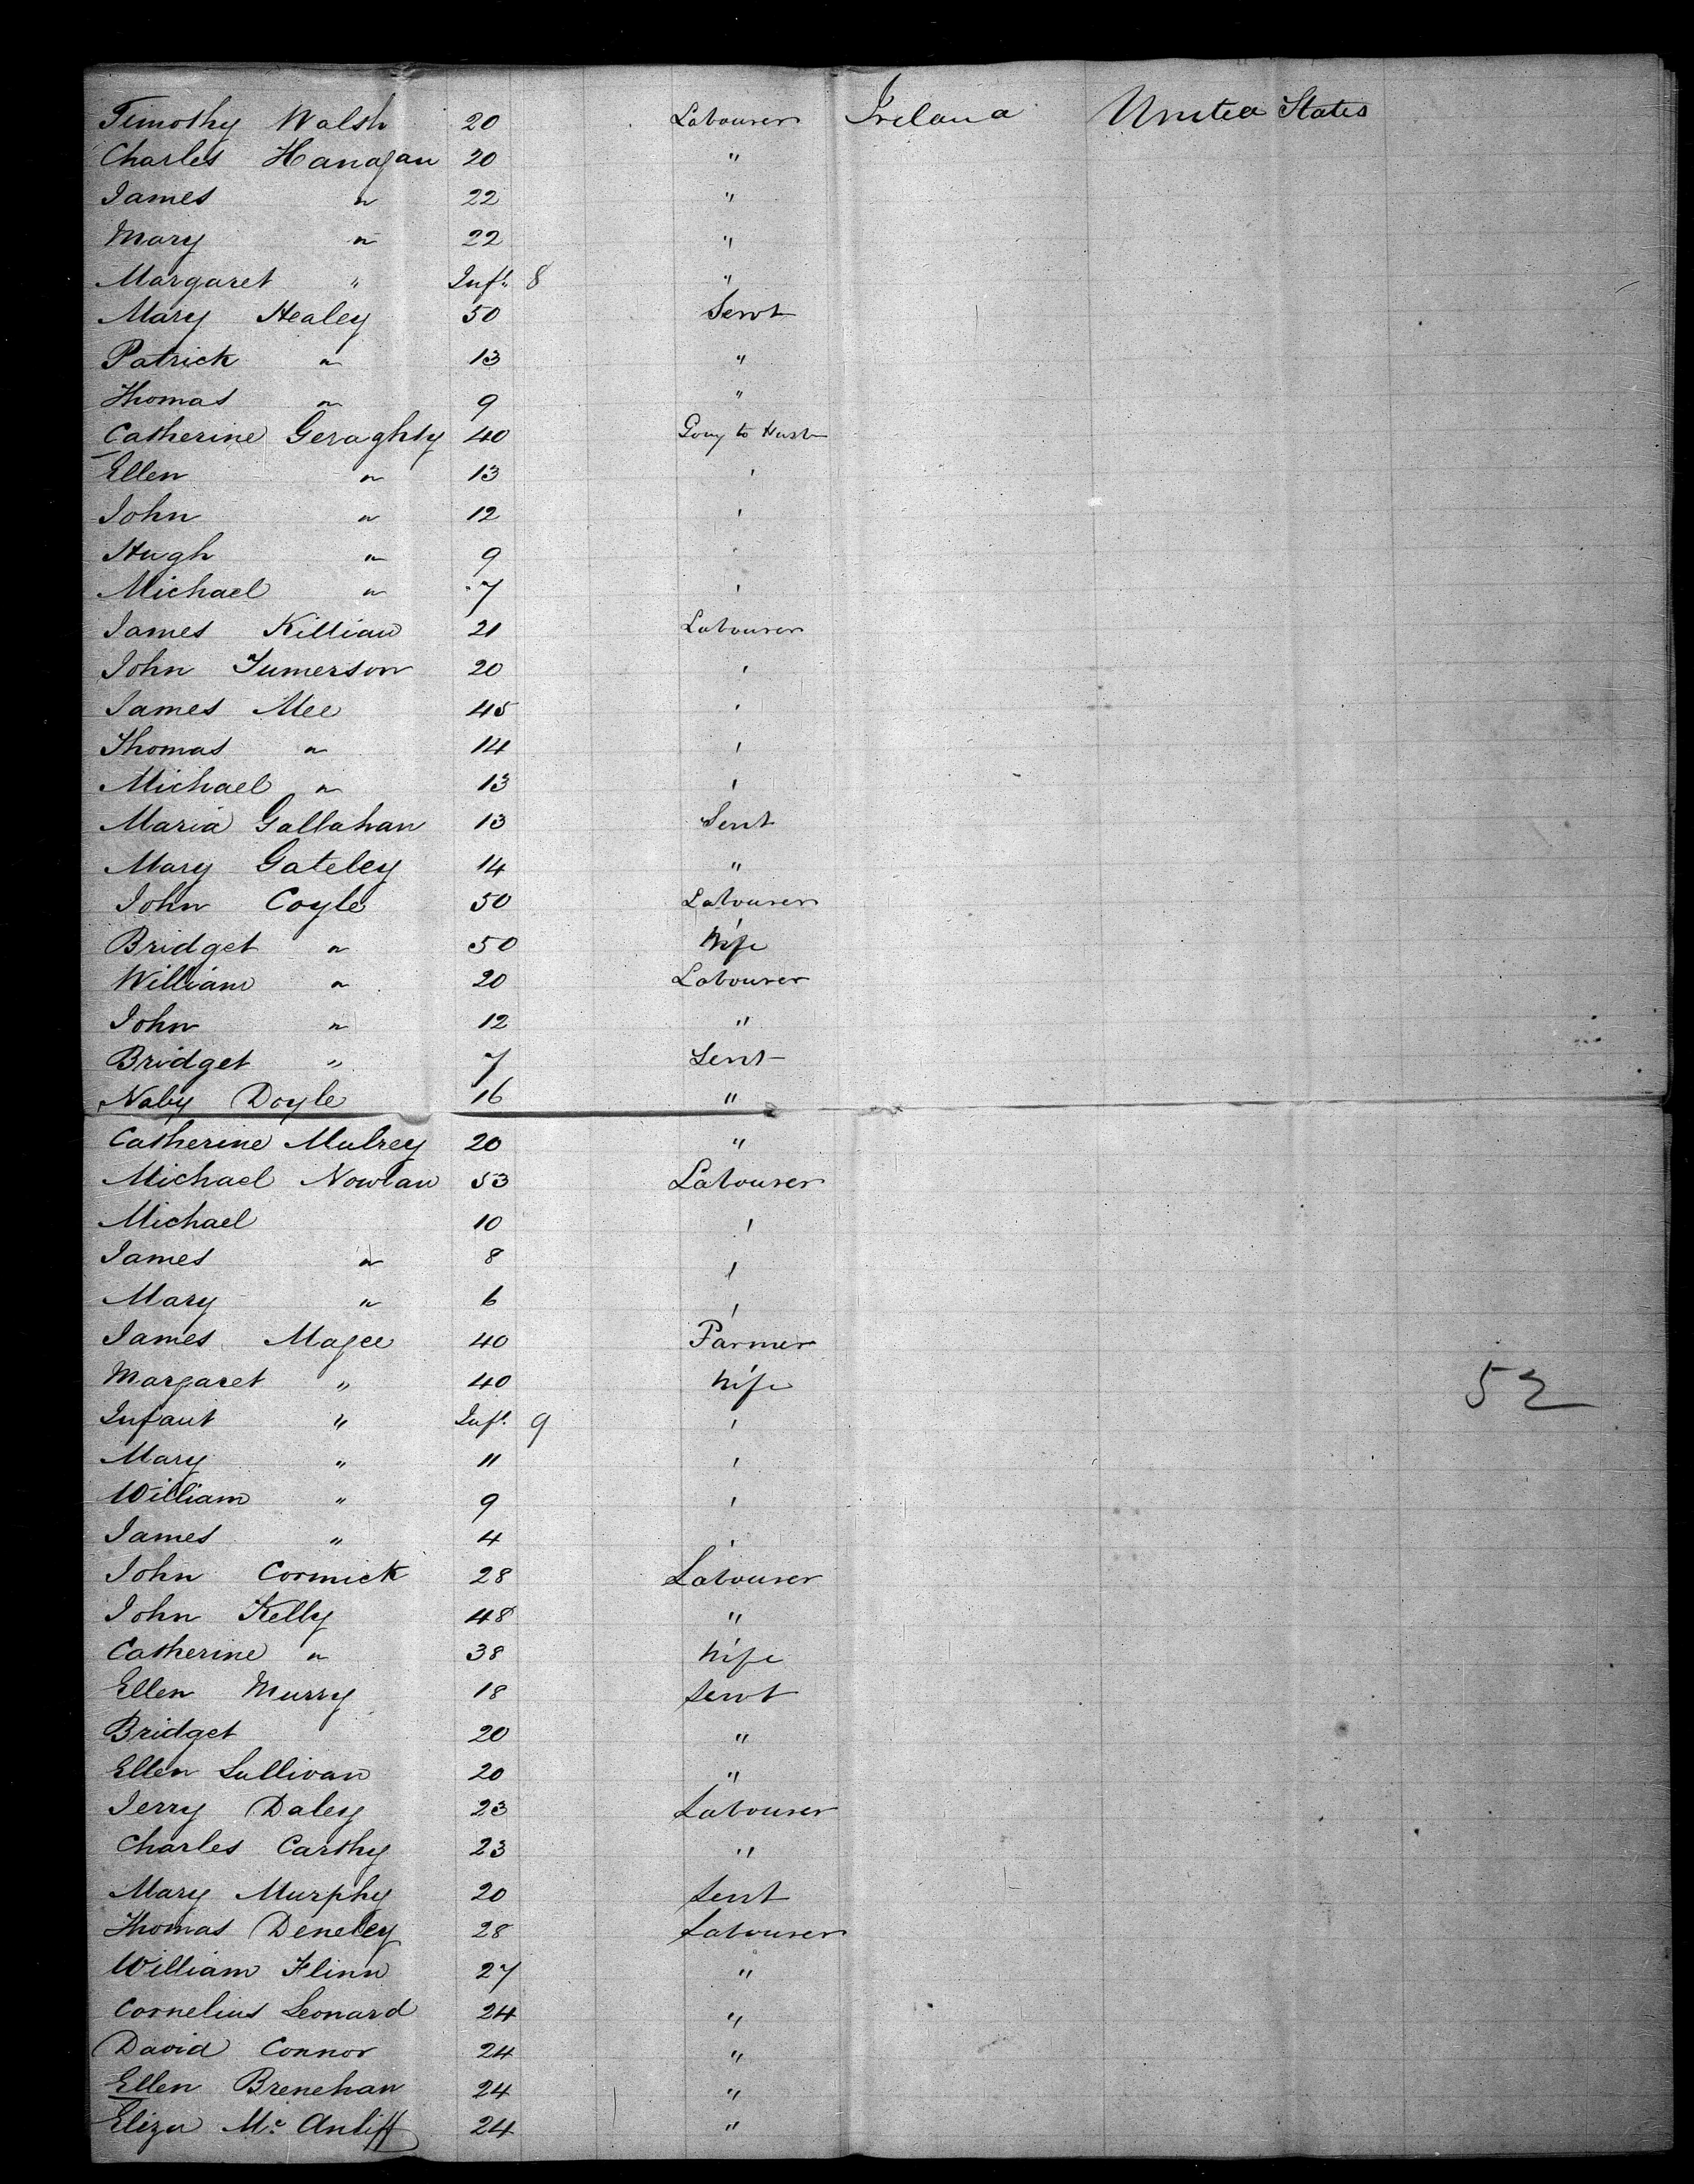 Timothy Walsh 20 Labourer Ireland United States
Charles Hanagan 20 "
James " 22 "
Mary " 22 "
Margaret " Inft. 8 "
Mary Healey 50 Servt
Patrick " 13 "
Thomas " 9 "
Catherine Geraghty 40 Going to Husb
Ellen " 13 '
John " 12 '
Hugh " 9 '
Michael " 7 '
James Killian 21 Labourer
John Jumerson 20 '
James Mee 45 '
Thomas " 14 '
Michael " 13 '
Maria Gallahan 13 Servt
Mary Gateley 14 "
John Coyle 50 Labourer
Bridget " 50 Wife
William " 20 Labourer
John " 12 "
Bridget " 7 Servt
Naby Doyle 16 "
Catherine Mulrey 20 "
Michael Nowlan 53 Labourer
Michael 10 '
James " 8 '
Mary " 6 '
James Magee 40 Farmer
Margaret " 40 Wife 52
Infant " Inft. 9 '
Mary " 11 '
William " 9 '
James " 4 '
John Cormick 28 Labourer
John Kelly 48 "
Catherine " 38 Wife
Ellen Murry 18 Servt
Bridget 20 "
Ellen Sullivan 20 "
Jerry Daley 23 Labourer
Charles Carthy 23 "
Mary Murphy 20 Servt
Thomas Deneley 28 Labourer
William Flinn 27 "
Cornelius Leonard 24 "
David Connor 24 "
Ellen Brenehan 24 "
Eliza Mc Anliff 24 "